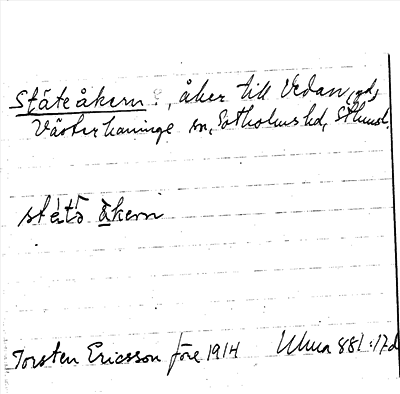 Ståteåkern?, åker till Vedan, gd,
Västerhaninge sn, Sotholms hd, Sthmsl.
ståtö åkern
Torsten Ericsson före 1914 Ulma 881:17d